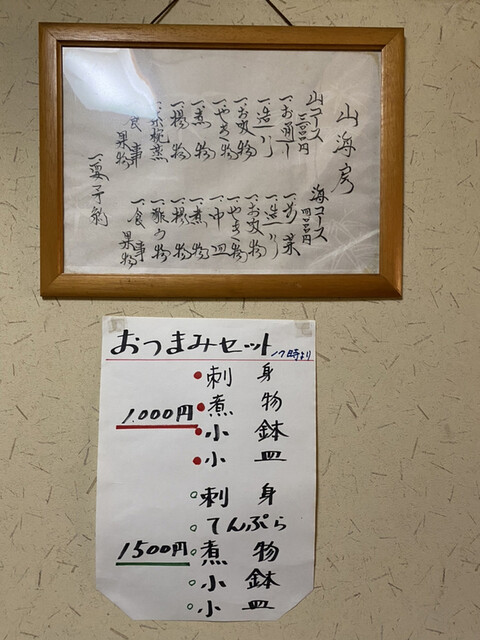 山海房
山コース
三〇〇〇円
一、お通し
一、造り
一、お吸物
一、やき物
一、煮物
一、揚物
一、茶椀蒸
食事
果物
海コース
四〇〇〇円
一、前菜
一、造り
一、お吸物
一、やき物
一、中皿
一、煮物
一、揚物
一、酢の物
一、食事
果物
一、要予約
おつまみセット 17時より
1.000円
●刺身
●煮物
●小鉢
●小皿
1500円
○刺身
○てんぷら
○煮物
○小鉢
○小皿